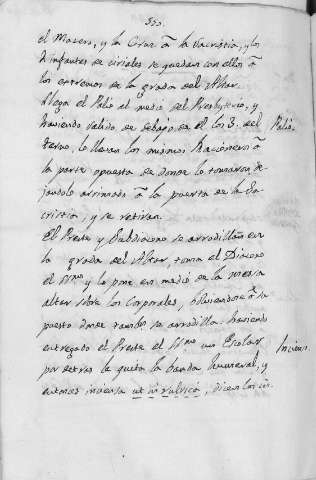 350.
el Masero, y la Cruz â la Sacristia, y los
Ynfantes de ciriales se quedan con ellos â
los extremos de la grada del Altar.
Llega el Palio al medio del Presbyterio, y
haviendo salido de debajo de el los 3. del Palio.
Terno, lo llevan los mismos Racioneros â
la parte opuesta de donde lo tomaron de-
jandolo arrimado â la puerta de la Sa-
cristia, y se retiran.
El Preste y Subdiacono se arrodillan en
la grada del Altar, toma el Diacono
el SSmo y lo pone en medio de la mesa
altar sobre los Corporales, bolviendose â su
puesto donde tambn. se arrodilla. haviendo
entregado el Preste el SSmo un Escolar Inciens.
por detras le quita la banda humeral, y
entonces inciensa ut in rubrica, dicen los in-